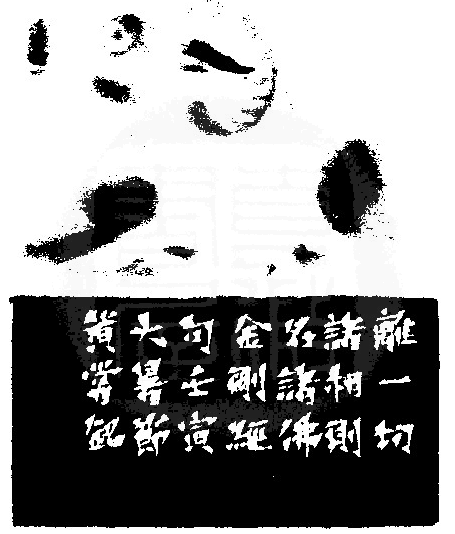 離一切
諸相則
名諸佛
金剛經
句壬寅
大暑節
黃